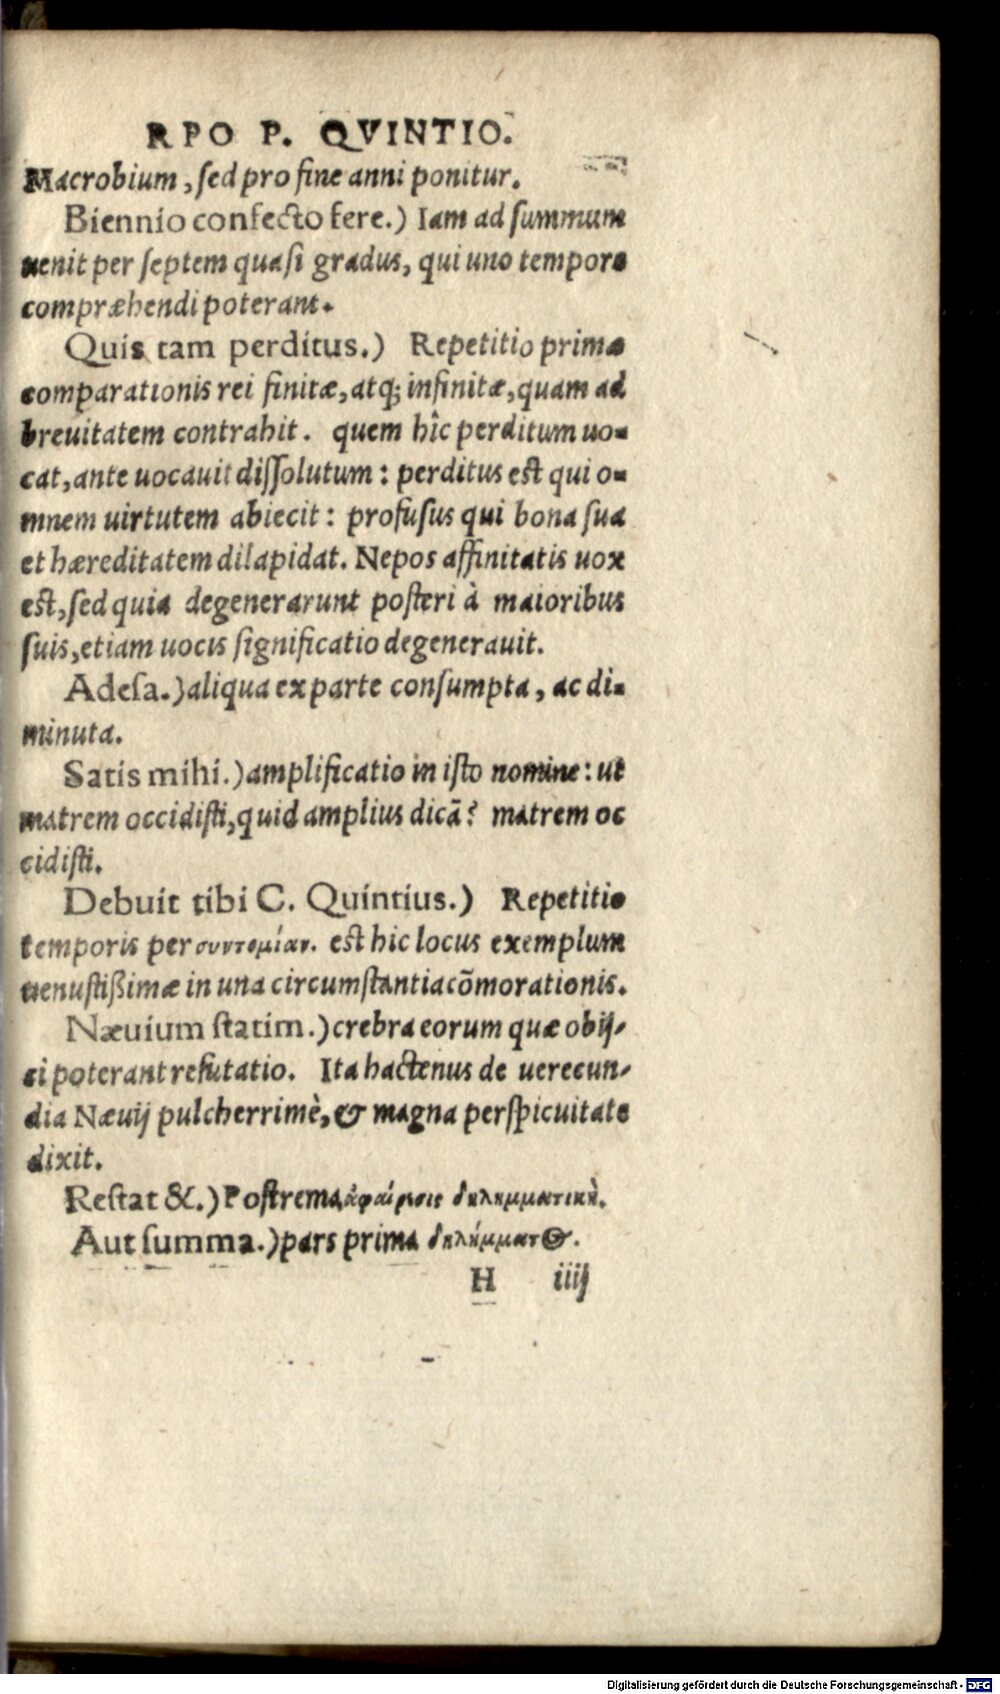 RPO P. QVINTIO.
Macrobium, sed pro fine anni ponitur.
Biennio confecto fere.) Iam ad summum
uenit per septem quasi gradus, qui uno tempore
compræhendi poterant.
Quis tam perditus.) Repetitio primæ
comparationis rei finitæ, atq; infinitæ, quam ad
breuitatem contrahit. quem hîc perditum uo-
cat, ante uocauit dissolutum: perditus est qui o-
mnem uirtutem abiecit: profusus qui bona sua
et hæreditatem dilapidat. Nepos affinitatis uox
est, sed quia degenerarunt posteri à maioribus
suis, etiam uocis significatio degenerauit.
Adesa.) aliqua ex parte consumpta, ac di-
minuta.
Satis mihi.) amplificatio in isto nomine: ut
matrem occidisti, quid amplius dicā? matrem oc
cidisti.
Debuit tibi C. Quintius.) Repetitio
temporis per συντομίαν. est hic locus exemplum
uenustißimæ in una circumstantia cōmorationis.
Næuium statim.) crebra eorum quæ obij-
ci poterant refutatio. Ita hactenus de uerecun-
dia Næuij pulcherrimè, & magna perspicuitate
dixit.
Restat &.) Postrema ἀφαίρεσις διλημματικὴ.
Aut summa.) pars prima διλήμματος.
H iiij
Digitalisierung gefördert durch die Deutsche Forschungsgemeinschaft - DFG